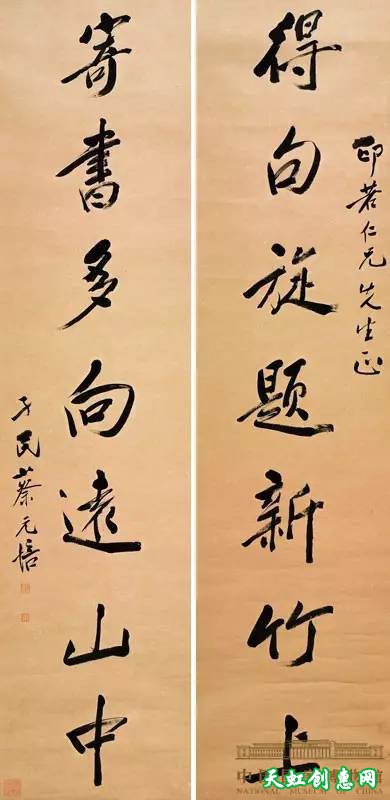 印若仁兄先生正
得句旋题新竹上
寄書多向遠山中
孑民蔡元培
NATIONAL MUSEUM OF CHINA
天虹创惠网